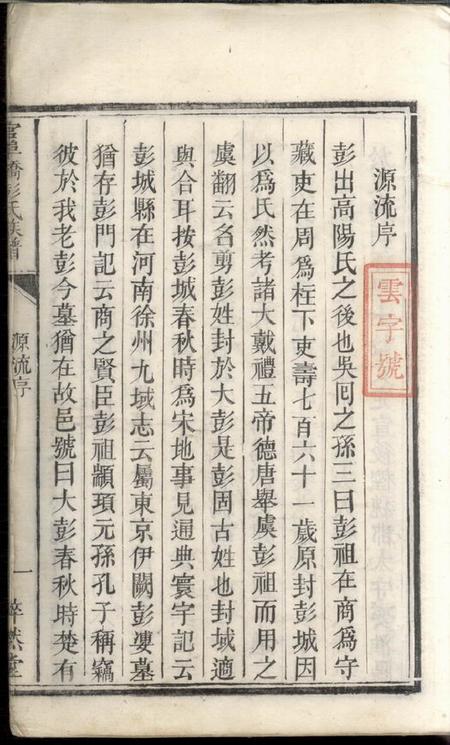 源流序
雲字號
彭出高陽氏之後也吳囘之孫三曰彭祖在商爲守
藏吏在周爲柱下吏壽七百六十一歲原封彭城因
以爲氏然考諸大戴禮五帝德唐舉虞彭祖而用之
虞翻云名剪彭姓封於大彭是彭固古姓也封域適
與合耳按彭城春秋時爲宋地事見通典寰宇記云
彭城縣在河南徐州九域志云屬東京伊闕彭婆墓
猶存彭門記云商之賢臣彭祖顓頊元孫孔子稱竊
彼於我老彭今墓猶在故邑號曰大彭春秋時楚有
官阜橋彭氏族譜
源流序
一